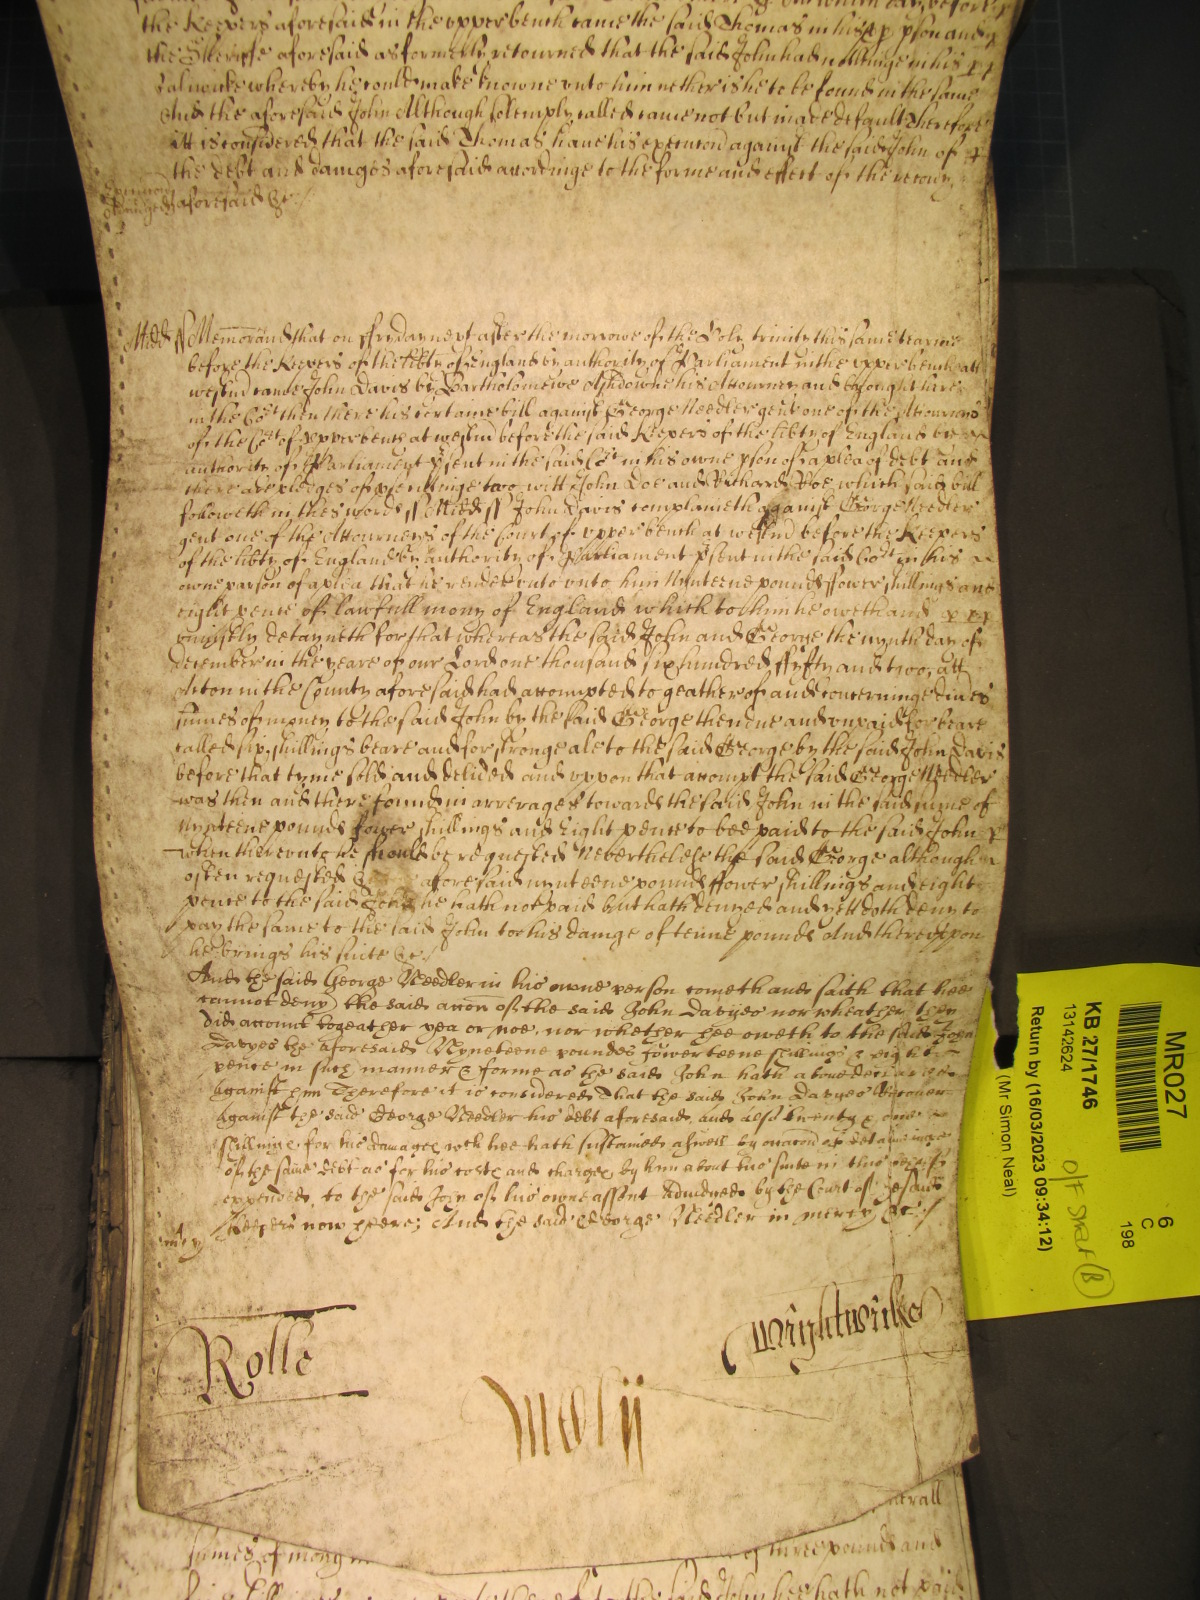 the Keepers aforesaid in the upper bench came the said Thomas in his pson and
the Sheriffe aforesaid as formerly retourned that the said John had nothinge in his
Balywicke whereby he could make knowne unto him nether is he to be found in the same
And the aforesaid John Although solemply called came not but made default Therefore
itt is considered that the said Thomas have his execucon against the said John of
the debt and damges aforesaid accordinge to the forme and effect of the recouy
aforesaid &c
Midd ss Memorand that on ffryday next after the morrowe of the Holy trinity this same tearme
before the Keepers of the libty of England by authority of Parliament in the upper bench att
westmr came John Davis by Bartholomewe Ashdowne his Attourney and brought here
in the Cort then there his certaine bill against George Needler gent one of the Attournies
of the Cort of upper bench at westmr before the said Keepers of the libty of England by
authority of Parliament psent in the said Cort in his owne pson of a plea of debt and
there are pledges of psecutinge two witt John Doe and Richard Roe which said bill
followeth in these words ss Midd ss John Davis complaineth against George Needler
gent one of the Attourneys of the Court of upper bench at westmr before the Keepers
of the libty of England by authority of Parliament psent in the said Cort in his
owne parson of a plea that he render unto him Nynteene pounds ffower shillings and
eight pence of lawfull mony of England which to him he oweth and
uniustly detayneth for that whereas the said John and George the nynth day of
december in the yeare of our Lord one thousand six hundred ffyfty and two, att
Acton in the County aforesaid had accompted to geather of and concerninge divs
sumes of money to the said John by the said George then due and unpaid for beare
called six shillings beare and for stronge ale to the said George by the said John Davis
before that tyme sold and delived and uppon that accompt the said George Needler
was then and there found in arrerages towards the said John in the said sume of
Nynteene pounds fower shillings and Eight pence to bee paid to the said John
when thereunto he should be requested Neverthelesse the said George although
often requested aforesaid nynteene pounds ffower shillings and eight
pence to the said John he hath not paid but hath denyed and yett doth deny to
pay the same to the said John to his damge of tenne pounds And thereuppon
he brings his suite &c
And the said George Needler in his owne person cometh and saith that hee
cannot deny the said accon of the said John Davyes nor wheather they
did accompt togeather yea or noe, nor whether hee oweth to the said John
Davyes the aforesaid Nyneteene poundes fowerteene shillings & eight
pence in such manner & forme as the said John hath above declared
against him Therefore it is considered That the said John Davyes Recover
against the said George Needler his debt aforesaid and also twenty & one
shillings for the damages wch hee hath susteined aswell by occacon of detaininge
of the same debt as for his costs and charges by him about his suite in this behalfe
expended, to the said John of his owne assent Adiudged by the Court of
Keepers now heere; And the said George Needler in mercy &c
mcy
Rolle
Wightwicke
sumes of mony
three pounds and
MR027
KB 27/1746
13142624
6
C
198
Return by (16/03/2023 09:34:12)
(Mr Simon Neal)